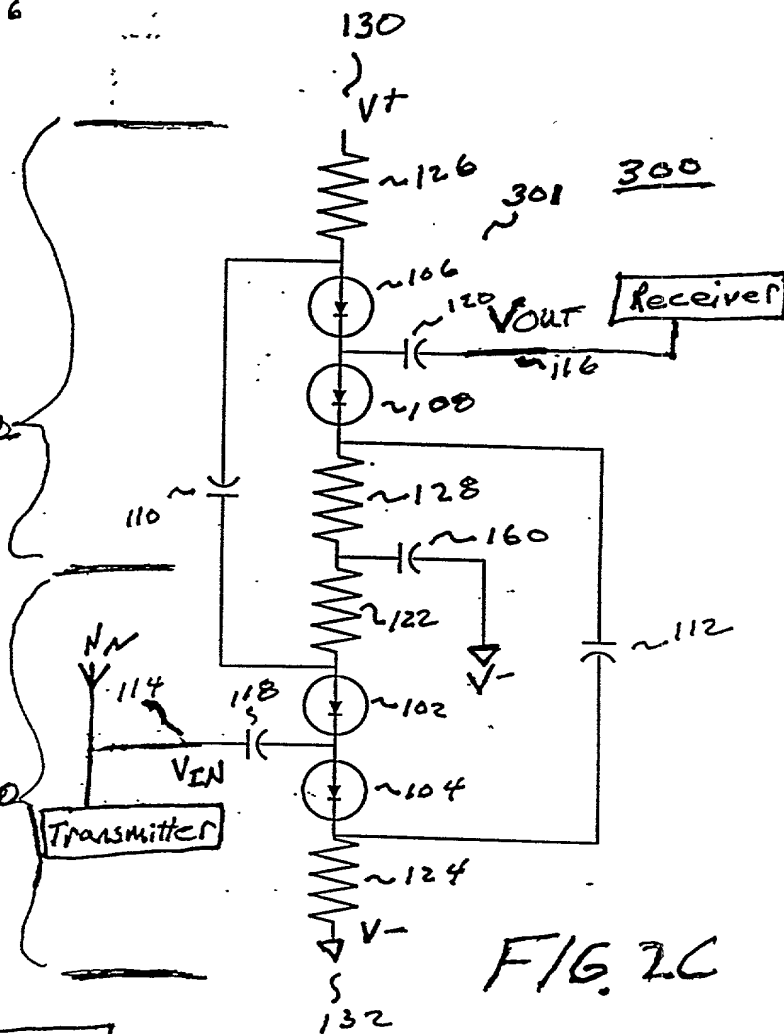 6
130
V+
126
301
300
106
120
VOUT
Receiver
116
108
128
110
160
122
112
V-
114
118
102
VIN
104
Transmitter
124
V-
132
FIG. 2C